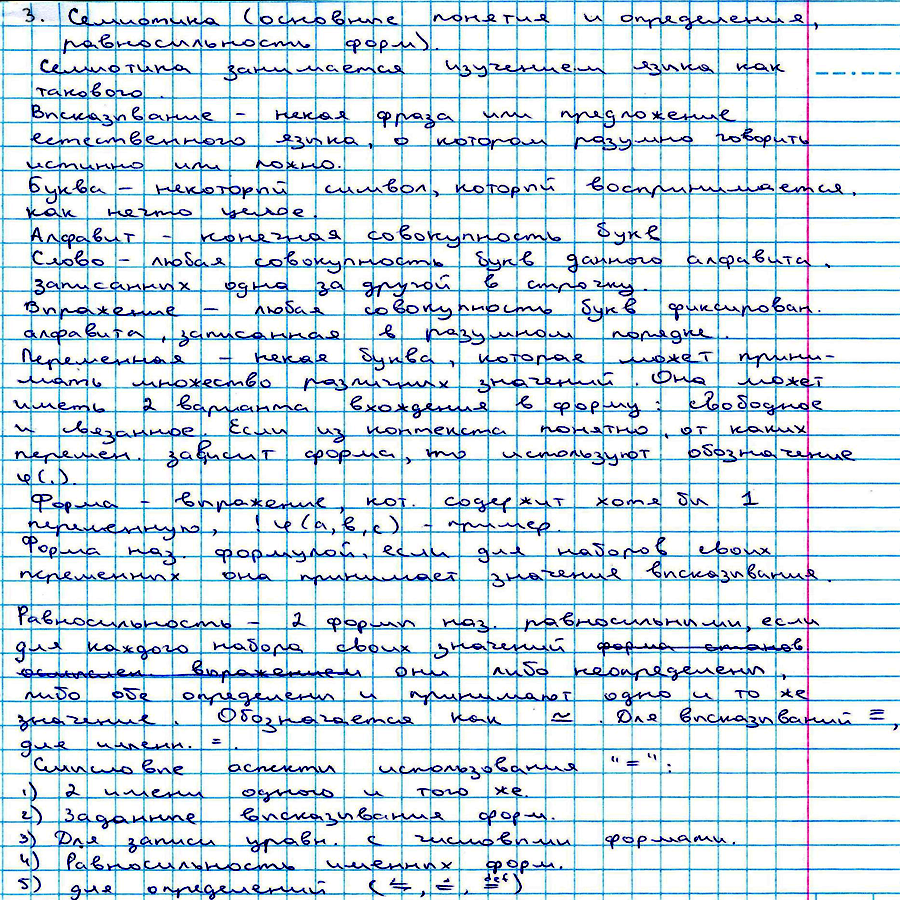 3. Семиотика (основные понятия и определения,
равносильность форм).
Семиотика занимается изучением языка как
такового.
Высказывание - некая фраза или предложение
естественного языка, о котором разумно говорить
истинно или ложно.
Буква - некоторый символ, который воспринимается.
как нечто целое.
Алфавит - конечная совокупность букв
Слово - любая совокупность букв данного алфавита.
записанных одна за другой в строчку.
Выражение - любая совокупность букв фиксирован.
алфавита, записанная в разумном порядке.
Переменная - некая буква, которая может прини-
мать множество различных значений. Она может
иметь 2 варианта вхождения в форму: свободное
и связанное. Если из контекста понятно, от каких
перемен. зависит форма, то используют обозначение
φ(.).
Форма - выражение, кот. содержит хотя бы 1
переменную, ! φ(a,b,c) - пример.
Форма наз. формулой, если для наборов своих
переменных она принимает значения высказывания.
Равносильность - 2 формы наз. равносильными, если
для каждого набора своих значений форма
выражением они либо неопределены,
либо обе определены и принимают одно и то же
значение. Обозначается как ≃. Для высказываний ≡,
для именн. =.
Смысловые аспекты использования "=":
1) 2 имени одного и того же.
2) Заданные высказывания форм.
3) Для записи уравн. с числовыми формами.
4) Равносильность именных форм.
5) для определений (⇆, ≐, ≝)